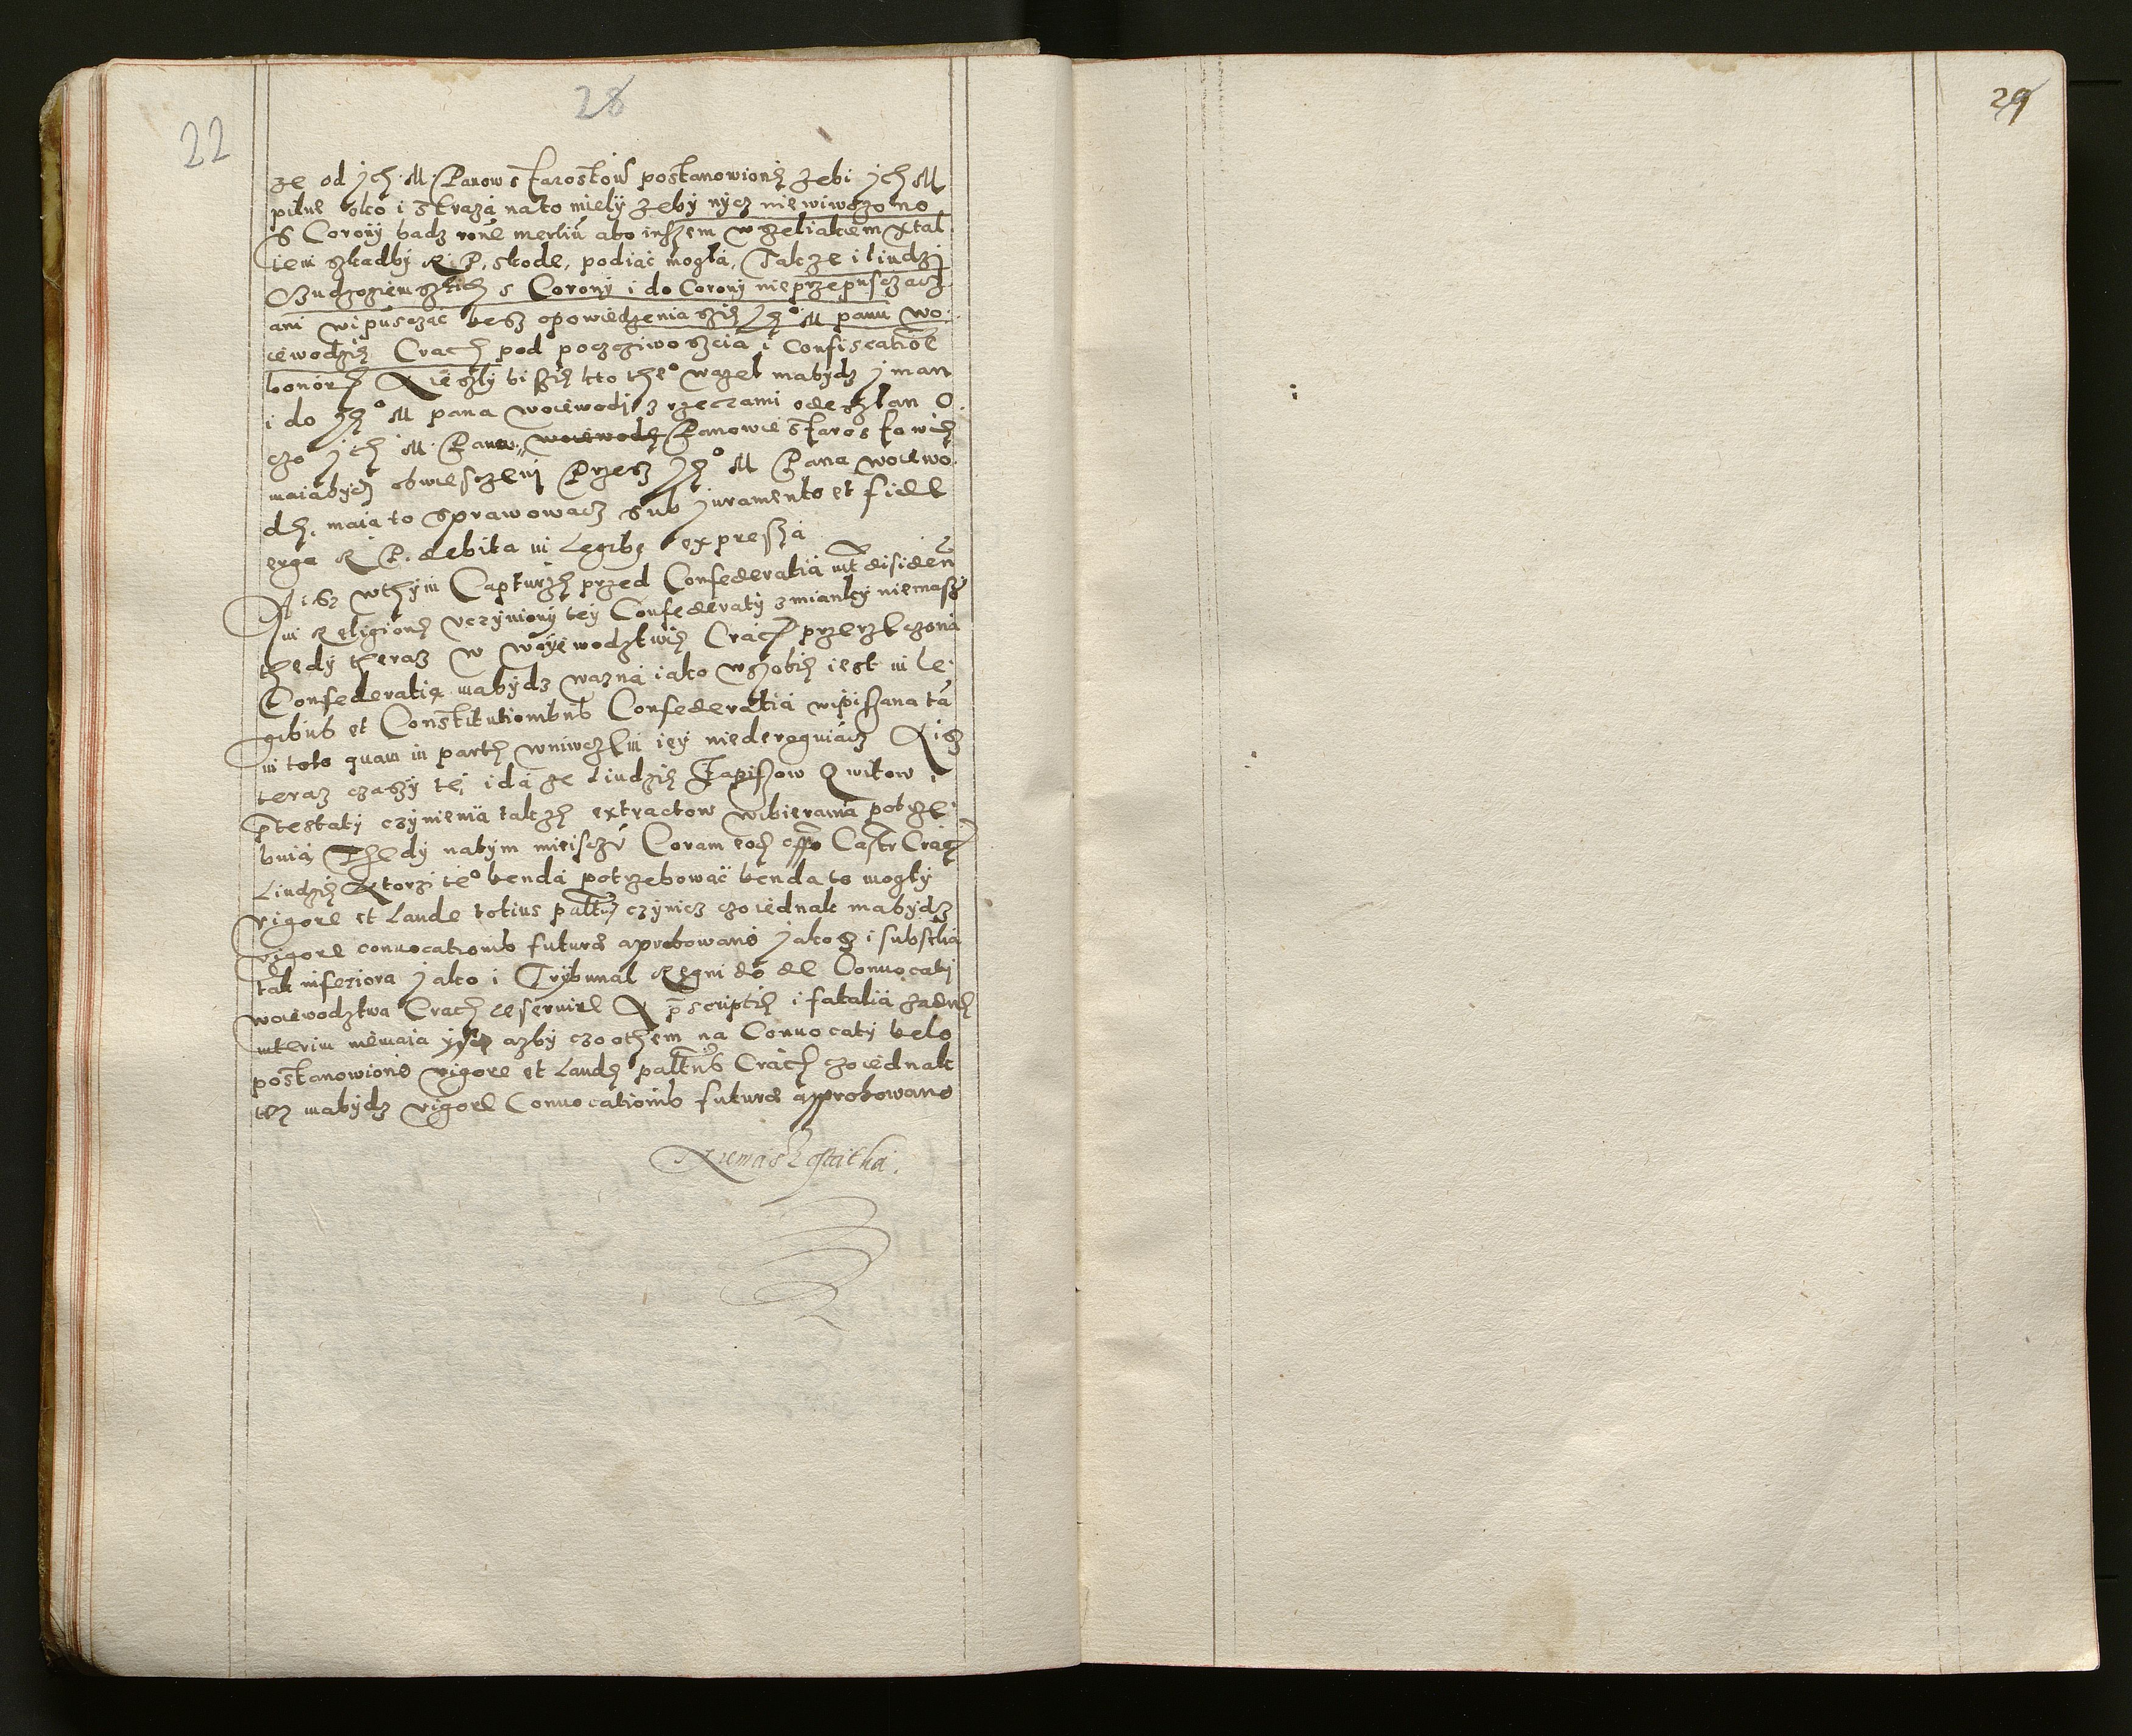 28
22
29
ze od ych M Panow starostow postanowionę zebi ych M
pilne oko i strazą na to miely zeby nycz niewiwozono
s Corony badz rone merliu abo inszem wszeliakiem xtal
tem skadby R P. skode, podiac mogła, Takze i liudzi
Czudzoziemskich s Corony i do Corony nieprzepusczacz
ani wipusczac besz opowiedzenia szię Jego M panu wo
iewodzię Crac pod poczciwoszcia i Confiscatiole
bonor Kieszly bi szię kto the° wazel mabydz yman
i do Jego M pana woiewodi z rzeczami odeszlan O
czo ych M Panow woiewode Panowie starostowię
maiabydz obwiesczeni Przesz Jego M Pana woiewo
dę. maia to sprawowacz sub juramento et fidel
erga R P. debita in Legibus expressa
Asz wthym Capturze przed Confederatią int disiden
in Religione uczyniony tey Confederaty zmianky niemasz
thedy theraz w woyewodztwię Crac przerzeczona
Confederatia mabydz wazna iako wszobię iest in le
gibus et Constitutionibus Confederatia wipiszana ta
in toto quam in parte wniwczem iey niederoguiacz Kisz
teraz czaszy te ida ze Liudzię Zapiszow Qwitow i
ptestaty czynienia takze extractow wibierania potrze
buią Thedy natym mieisczu Coram eode offo Castr Crac
Liudzię ktorzi te° benda potrzebowac benda to mogly
vigore et Laude totius paltus czynicz czoiednak mabydz
vigore convocationis futurae aprobowano yakosz i subselia
tak inferiora yako i Trybunal Regni do de Convocaty
woiewodztwa Crac reservire A pscriptię i fatalia zadne
interim niemaia yszcz azby czoothem na Convocaty belo
postanowiono vigore et Laude paltus Crac czoiednak
tez mabydz vigore Convocationis futurae approbowano